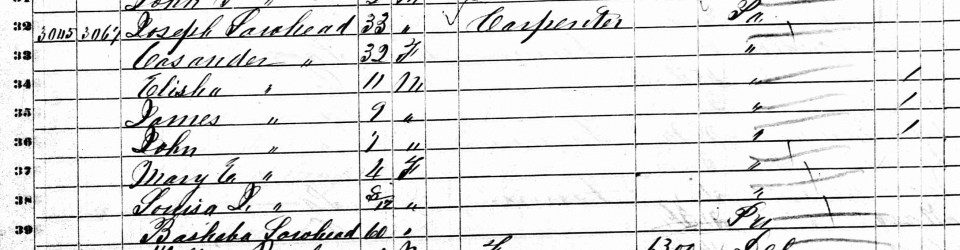 32 3005 3067 Joseph Sarohead 33 " Carpenter Pa
33 Casander " 32 F "
34 Elisha " 11 M " /
35 James " 9 " " /
36 John " 7 " " /
37 Mary E. " 4 F "
38 Louisa J. " 8/12 " "
39 Bashaba Sarohead 60 " Pa
1300 Del